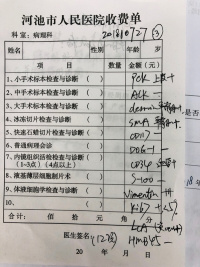 河池市人民医院收费单
科室:病理科 20181027 ③
姓名 性别 年龄
项目 数量 金额(元)
1、小手术标本检查与诊断 ( ) PCK
2、中手术标本检查与诊断 ( ) ACK —
3、大手术标本检查与诊断 ( )
4、冰冻切片检查与诊断 ( ) SMA
5、快速石蜡切片检查与诊断 ( ) CD117 —
6、普通病理会诊 ( ) DOG-1 —
7、内镜组织活检检查与诊断 ( ) CD34
(1~3点)(4点以上)
8、液基薄层细胞制片术 ( ) S-100 —
9、体液细胞学检查与诊断 ( ) Vimentin
10、 ( ) Ki67 +
合计: 佰 拾 元 角 分
LCA
医生签名: HMB45 —
20 年 月 日
是否